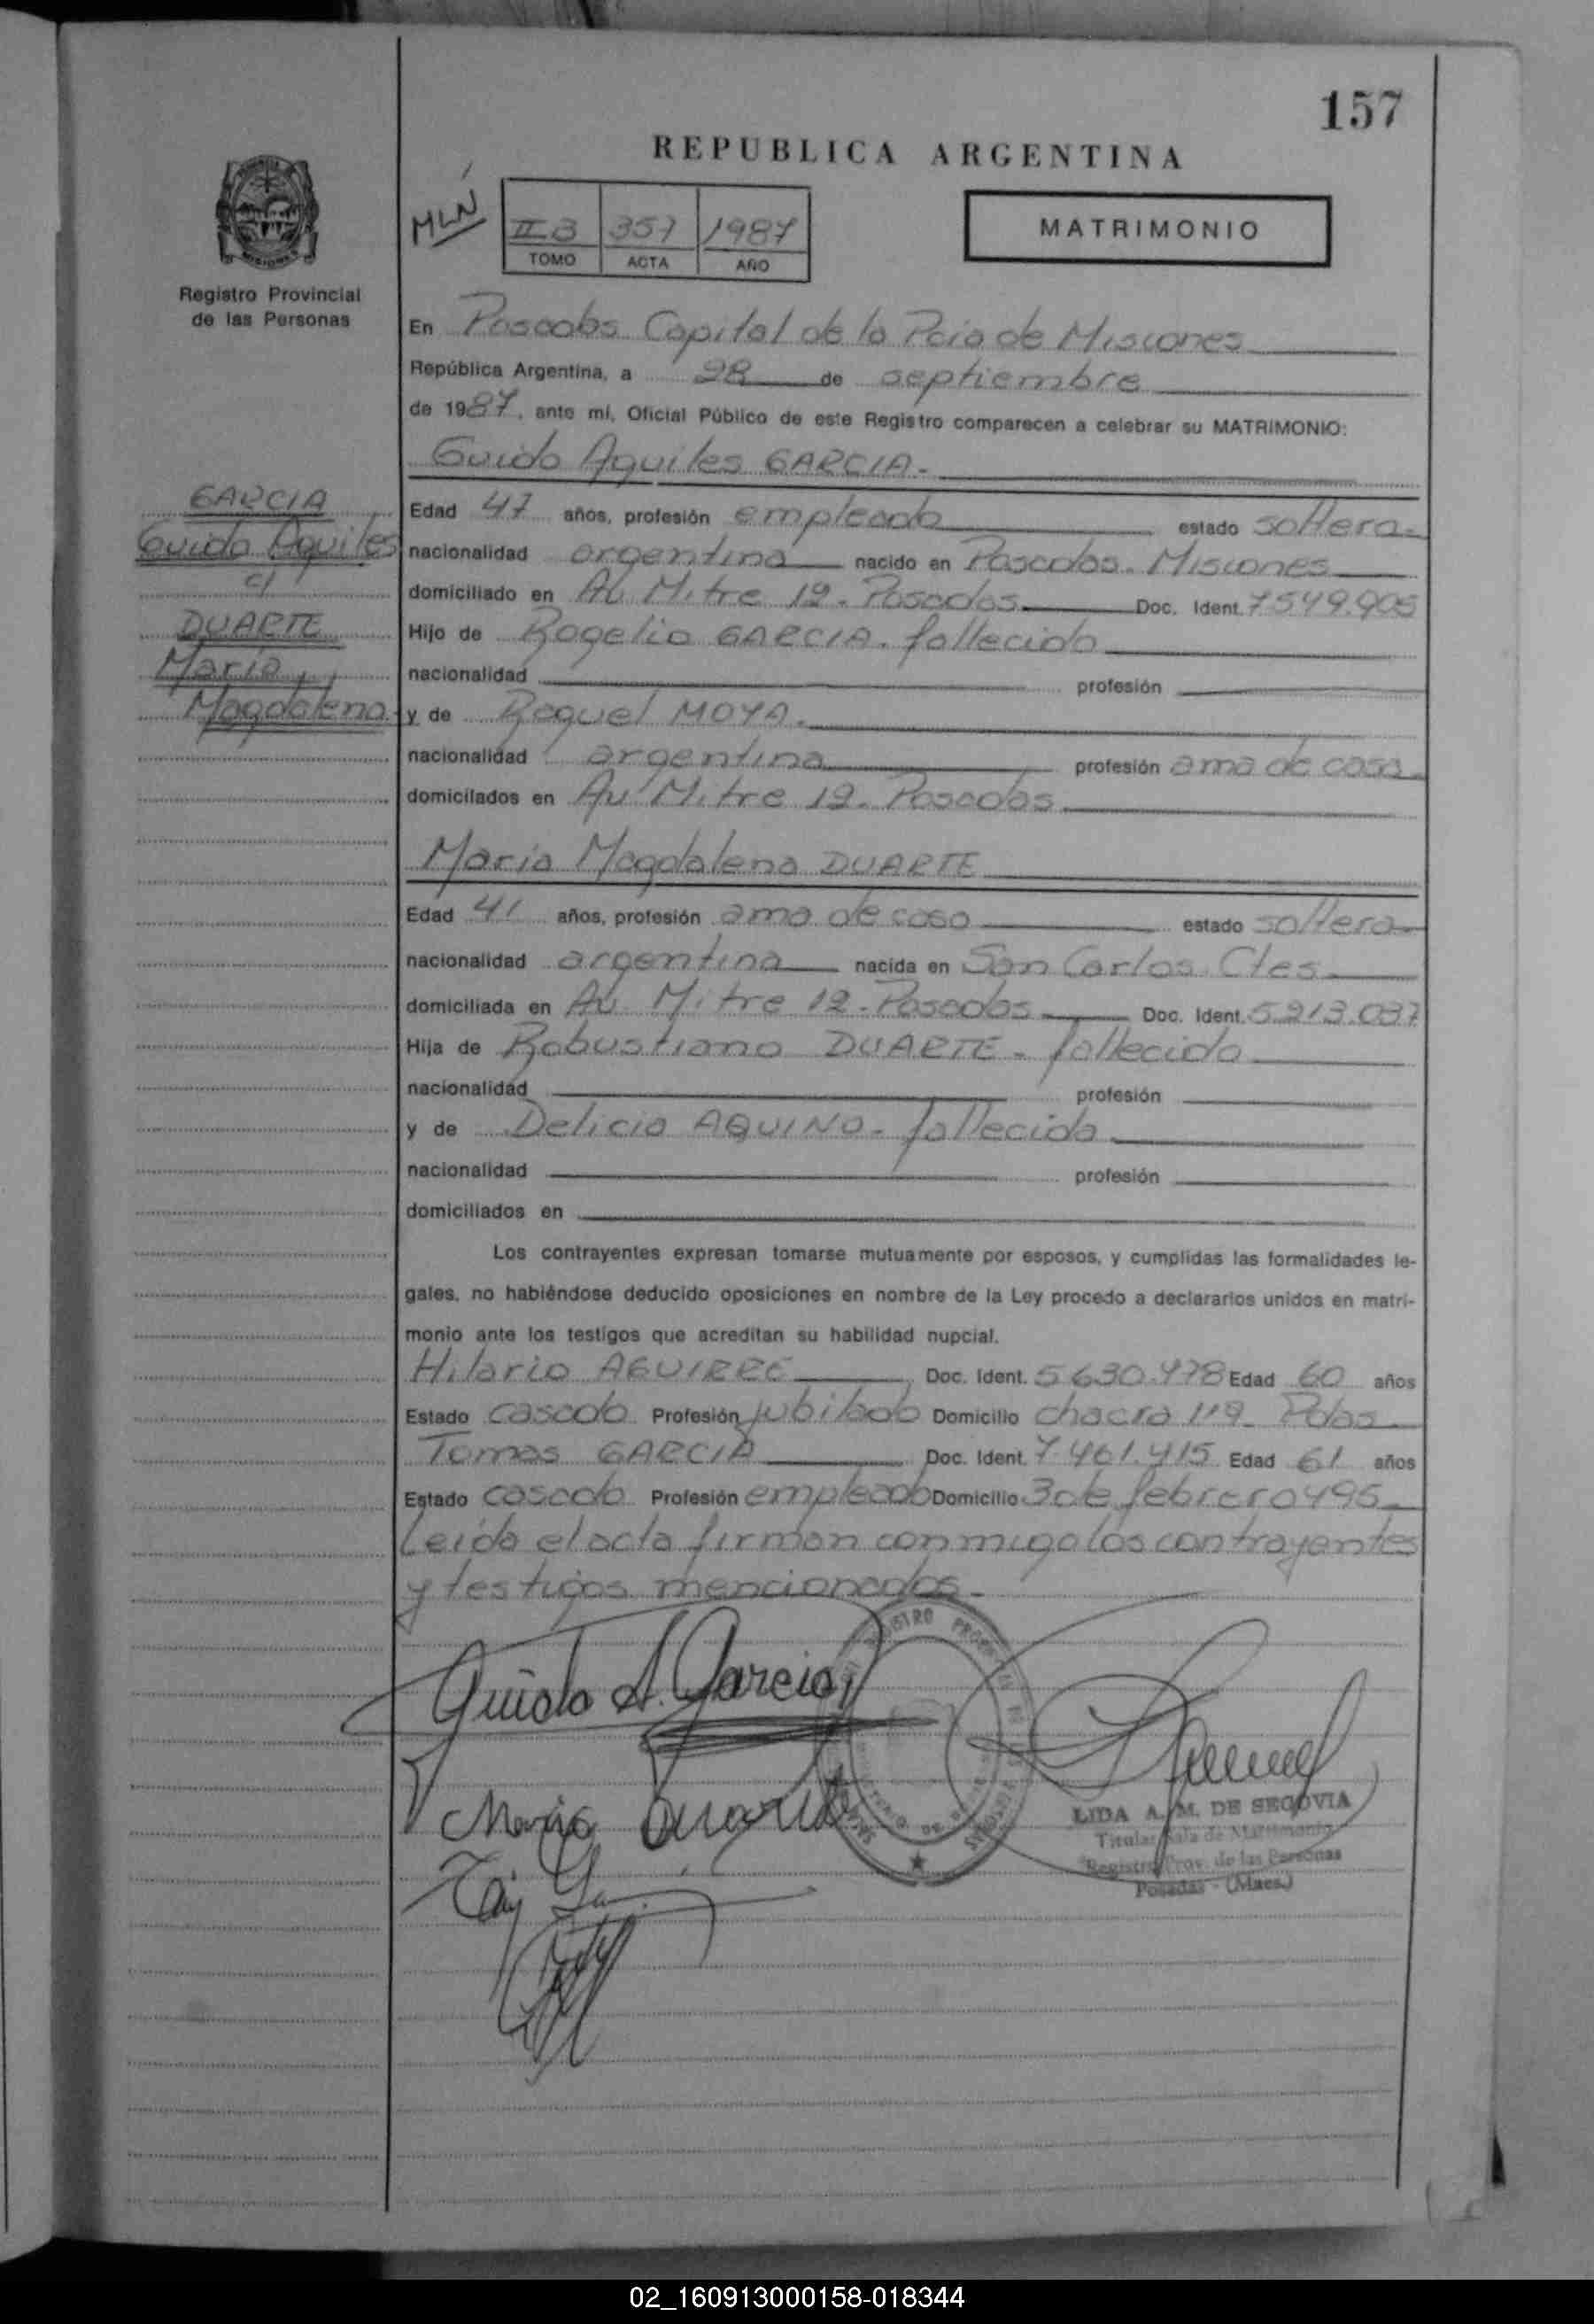 157
REPUBLICA ARGENTINA
MLN
II B 357 1987
TOMO ACTA AÑO
MATRIMONIO
Registro Provincial
de las Personas
En Posadas Capital de la Pcia de Misiones
República Argentina, a 28 de septiembre
de 1987, ante mí, Oficial Público de este Registro comparecen a celebrar su MATRIMONIO:
Guido Aquiles GARCIA.
GARCIA
Guido Aquiles
c/
DUARTE
María
Magdalena
Edad 47 años, profesión empleado estado soltero
nacionalidad argentina nacido en Posadas. Misiones
domiciliado en Av Mitre 12. Posadas Doc. Ident. 7549.905
Hijo de Rogelio GARCIA. fallecido
nacionalidad profesión
y de Raquel MOYA.
nacionalidad argentina profesión ama de casa
domicilados en Av Mitre 12. Posadas
María Magdalena DUARTE
Edad 41 años, profesión ama de casa estado soltera
nacionalidad argentina nacida en San Carlos. Ctes
domiciliada en Av Mitre 12. Posadas Doc. Ident. 5.213.037
Hija de Robustiano DUARTE. fallecido
nacionalidad profesión
y de Delicia AQUINO. fallecida
nacionalidad profesión
domiciliados en
Los contrayentes expresan tomarse mutuamente por esposos, y cumplidas las formalidades le-
gales, no habiéndose deducido oposiciones en nombre de la Ley procedo a declararlos unidos en matri-
monio ante los testigos que acreditan su habilidad nupcial.
Hilario AGUIRRE Doc. Ident. 5630.478 Edad 60 años
Estado casado Profesión jubilado Domicilio chacra 119. Pdas
Tomas GARCIA Doc. Ident. 7461.415 Edad 61 años
Estado casado Profesión empleado Domicilio 3 de febrero 495
Leída el acta firman conmigo los contrayentes
y testigos mencionados.
Guido A. Garcia
María Duarte
LIDA A. M. DE SEGOVIA
Titular Sala de Matrimonio
Registro Prov. de las Personas
Posadas - (Mnes.)
02_160913000158-018344